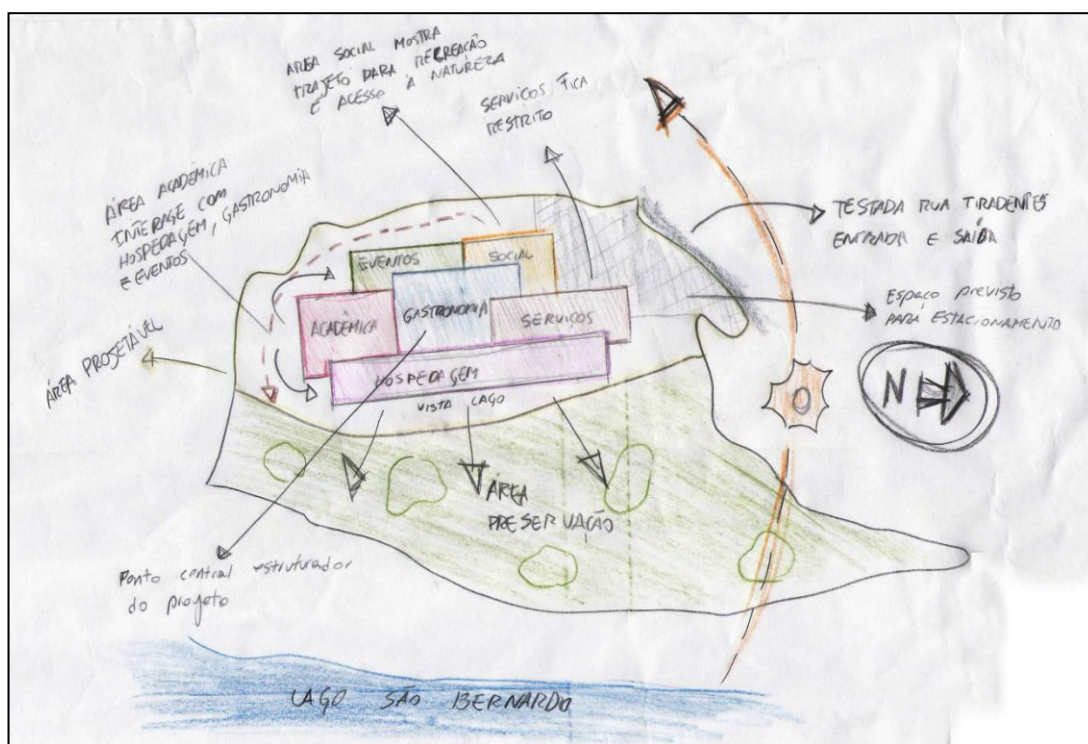 ÁREA SOCIAL MOSTRA
TRAJETO PARA RECREAÇÃO
E ACESSO À NATUREZA
SERVIÇOS FICA
RESTRITO
ÁREA ACADÊMICA
INTERAGE COM
HOSPEDAGEM, GASTRONOMIA
E EVENTOS
TESTADA RUA TIRADENTES
ENTRADA E SAÍDA
EVENTOS
SOCIAL
ESPAÇO PREVISTO
PARA ESTACIONAMENTO
ACADÊMICA
GASTRONOMIA
SERVIÇOS
ÁREA PROJETÁVEL
HOSPEDAGEM
VISTA LAGO
O
N
ÁREA
PRESERVAÇÃO
Ponto central estruturador
do projeto
LAGO SÃO BERNARDO